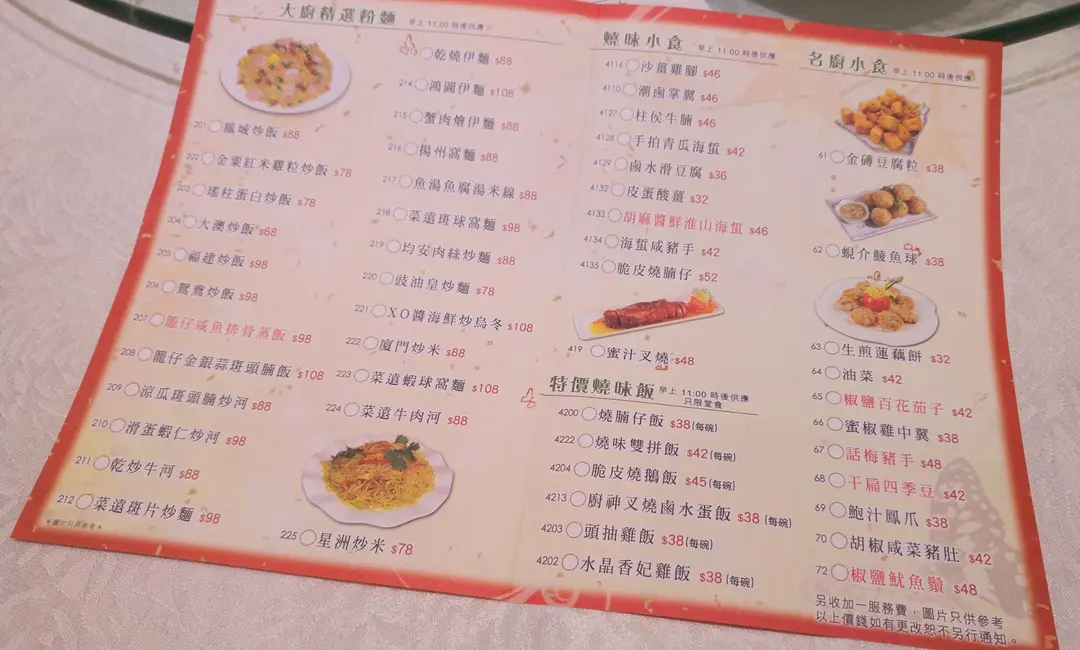 大廚精選粉麵 早上 11:00 時後供應
201 鳳城炒飯 $88
202 金粟紅米雞粒炒飯 $78
203 瑤柱蛋白炒飯 $78
204 大澳炒飯 $68
205 福建炒飯 $98
206 鴛鴦炒飯 $98
207 籠仔咸魚排骨蒸飯 $98
208 籠仔金銀蒜斑頭腩飯 $108
209 涼瓜斑頭腩炒河 $88
210 滑蛋蝦仁炒河 $98
211 乾炒牛河 $88
212 菜遠斑片炒麵 $98
*圖片只供參考*
213 乾燒伊麵 $88
214 鴻圖伊麵 $108
215 蟹肉燴伊麵 $88
216 揚州窩麵 $88
217 魚湯魚腐湯米線 $88
218 菜遠斑球窩麵 $98
219 均安肉絲炒麵 $88
220 豉油皇炒麵 $78
221 XO醬海鮮炒烏冬 $108
222 廈門炒米 $88
223 菜遠蝦球窩麵 $108
224 菜遠牛肉河 $88
225 星洲炒米 $78
燒味小食 早上 11:00 時後供應
4116 沙薑雞腳 $46
4110 潮鹵掌翼 $46
4127 柱侯牛腩 $46
4128 手拍青瓜海蜇 $42
4129 鹵水滑豆腐 $36
4132 皮蛋酸薑 $32
4133 胡麻醬鮮淮山海蜇 $46
4134 海蜇咸豬手 $42
4135 脆皮燒腩仔 $52
419 蜜汁叉燒 $48
特價燒味飯 早上 11:00 時後供應
只限堂食
4200 燒腩仔飯 $38(每碗)
4222 燒味雙拼飯 $42(每碗)
4204 脆皮燒鵝飯 $45(每碗)
4213 廚神叉燒鹵水蛋飯 $38(每碗)
4203 頭抽雞飯 $38(每碗)
4202 水晶香妃雞飯 $38(每碗)
名廚小食 早上 11:00 時後供應
61 金磚豆腐粒 $38
62 蜆介鯪魚球 $38
63 生煎蓮藕餅 $32
64 油菜 $42
65 椒鹽百花茄子 $42
66 蜜椒雞中翼 $38
67 話梅豬手 $48
68 干扁四季豆 $42
69 鮑汁鳳爪 $38
70 胡椒咸菜豬肚 $42
72 椒鹽魷魚鬚 $48
另收加一服務費，圖片只供參考
以上價錢如有更改恕不另行通知。